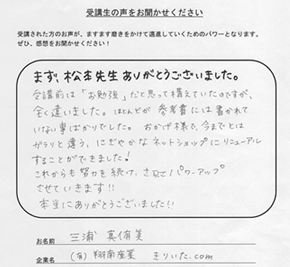 受講生の声をお聞かせください
受講された方のお声が、ますます磨きをかけて邁進していくためのパワーとなります。
ぜひ、感想をお聞かせください!
まず、松本先生ありがとうございました。
受講前は「お勉強」だと思って構えていたのですが、
全く違いました。ほとんどが参考書には書かれて
いない事ばかりでした。おかげ様で、今までとは
ガラリと違う、にぎやかなネットショップにリニューアル
することができました!
これからも努力を続け、さらにパワーアップ
させていきます!!
本当にありがとうございました!
お名前 三浦 真有美
企業名 (有)翔南産業 きりいた.com